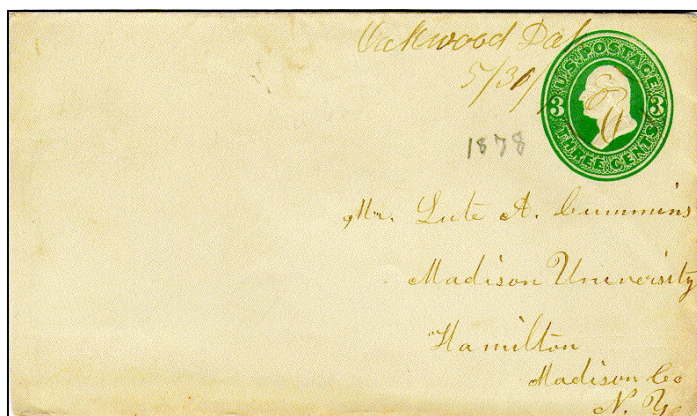 Oakwood Dak
5/30/
U.S. POSTAGE
3 3
THREE CENTS
1878
Mr. Lute A. Cummins
Madison University
Hamilton
Madison Co
N. Y.